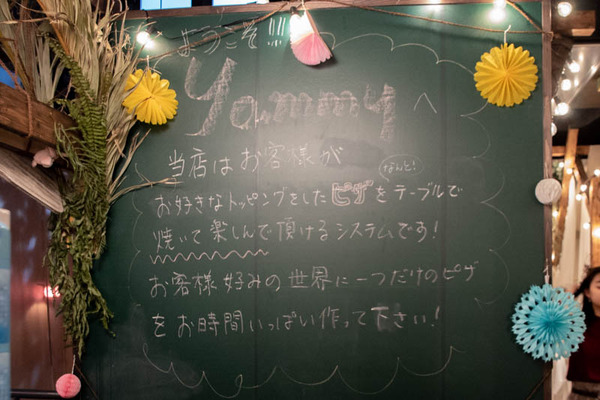 ようこそ!!!!
Yammyへ
当店はお客様が
なんと!
お好きなトッピングをしたピザをテーブルで
焼いて楽しんで頂けるシステムです!
お客様好みの世界に一つだけのピザ
をお時間いっぱい作って下さい!